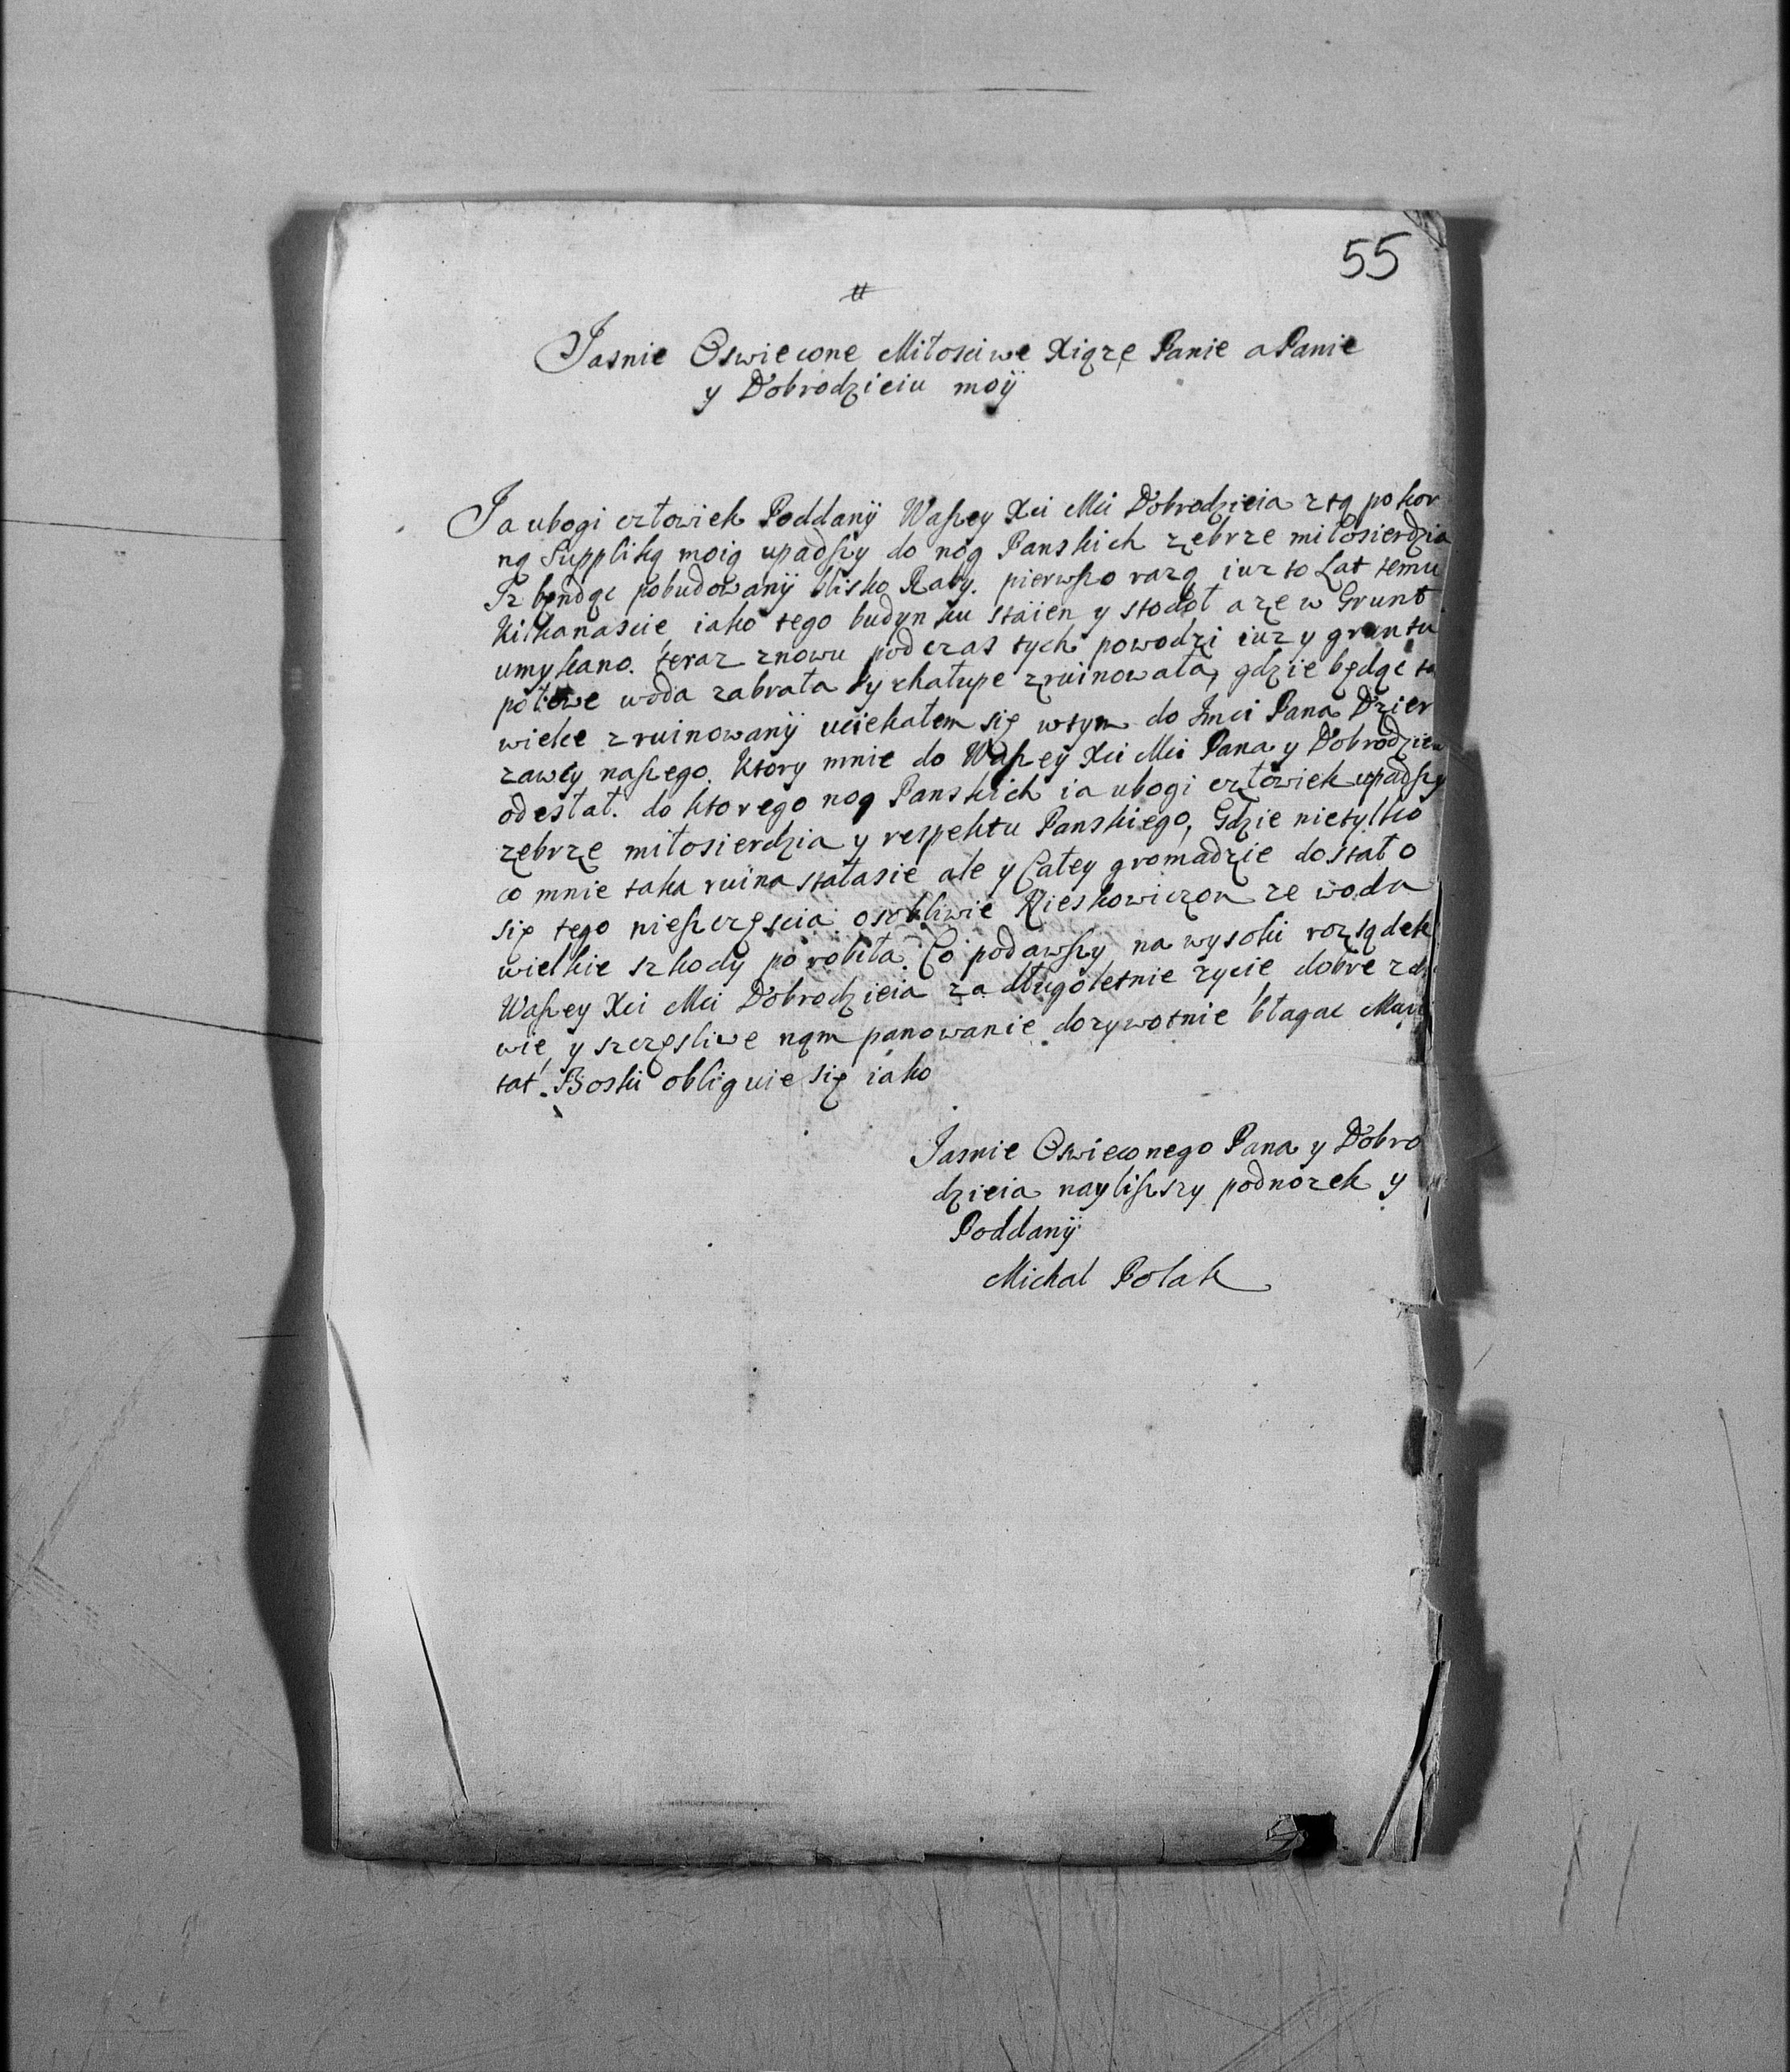 55
Jasnie Oswiecone Miłosciwe Xiązę Panie a Panie
y Dobrodzieiu moÿ
Ja ubogi człowiek Poddanÿ Waszey Xci Mci Dobrodzieia z tą pokor
ną Suppliką moią upadszy do nog Panskich zebrze miłosierdzia
Iz będąc pobudowanÿ blisko Raby. pierwszo razą iuz to Lat temu
Kilkanascie iako tego budynku staien y stodoł aze w Grunt
umykano. teraz znowu podczas tych powodzi iuz y gruntu
połowe woda zabrała y chałupe zruinowała, gdzie będąc ta
wielce zruinowanÿ uciekałem się wtym do Imci Pana Dzier
zawcy naszego. Ktory mnie do Waszeÿ Xci Mci Pana y Dobrodzieia
odesłał. do ktorego nog Panskich ia ubogi człowiek upadszy
zebrze miłosierdzia y respektu Panskiego, Gdzie nietylko
co mnie taka ruina stałasie ale y Całey gromadzie dostało
się tego nieszczęscia osobliwie Kieskowiczom ze woda
wielkie szkody porobiła. Co podawszy na wysoki rozsądek
Waszey Xci Mci Dobrodzieia za długoletnie zycie dobre zdr
wie y szczęsliwe nąm panowanie dozywotnie błagac Mai
tat Boski obliguie się iako
Jasnie Oswieconego Pana y Dobro
dzieia naylichszy podnozek y
Poddanÿ
Michal Polak